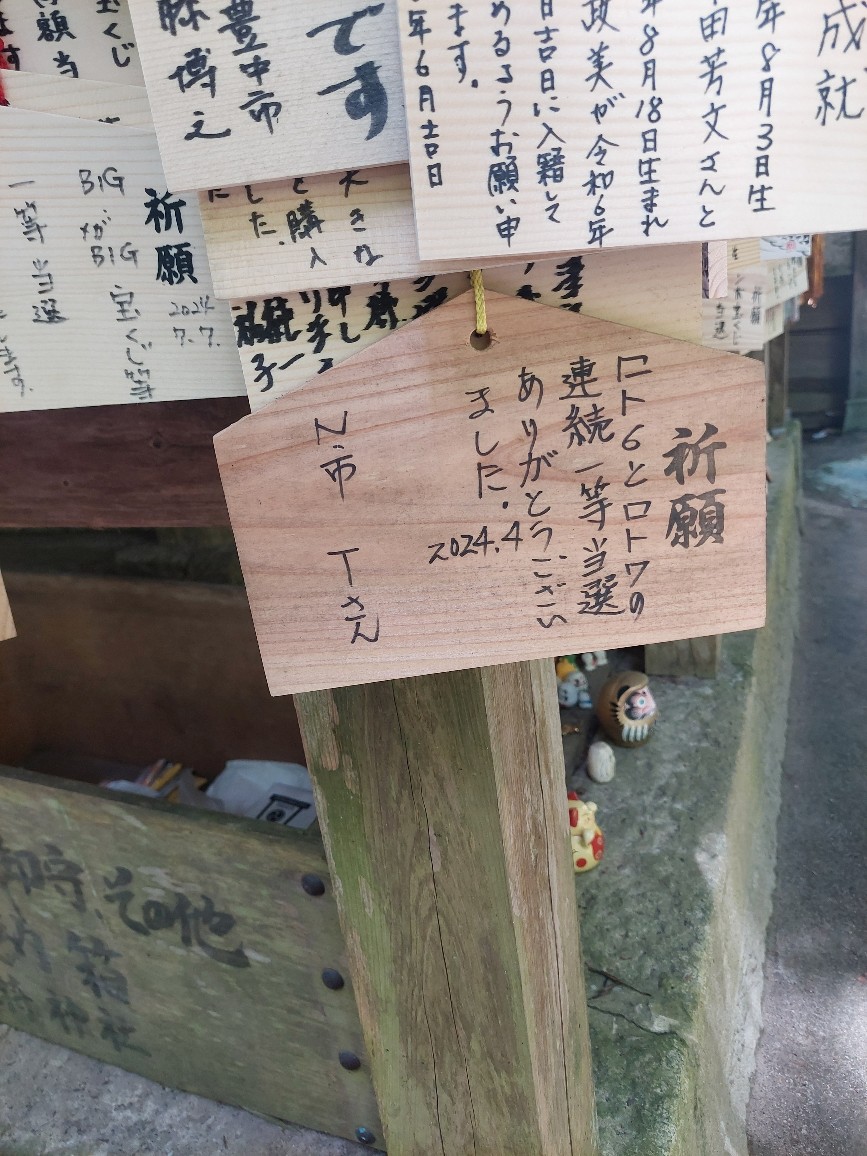 祈願
ロト6とロト7の
連続一等当選
ありがとうござい
ました。
2024.4
N市 Tさん
成就
年8月3日生
田芳文さんと
年8月18日生まれ
政美が令和6年
日吉日に入籍して
めるようお願い申
ます。
年6月吉日
です
豊中市
博之
大きな
と購入
した。
た
祈願
2024
7.7.
宝くじ等
BIGがBIG
一等当選
します。
宝くじ
額当
ます
その他
箱
神社